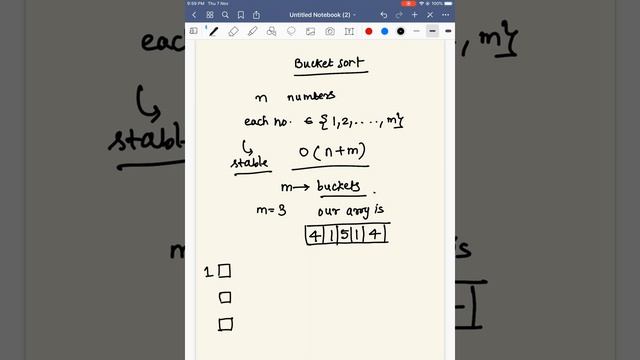 9:59 PM Thu 7 Nov
100%
Untitled Notebook (2)
Bucket sort
n numbers
each no. ∈ {1,2,....,m}
↳ stable
O(n+m)
m → buckets.
m=3 our array is
4 1 5 1 4
1